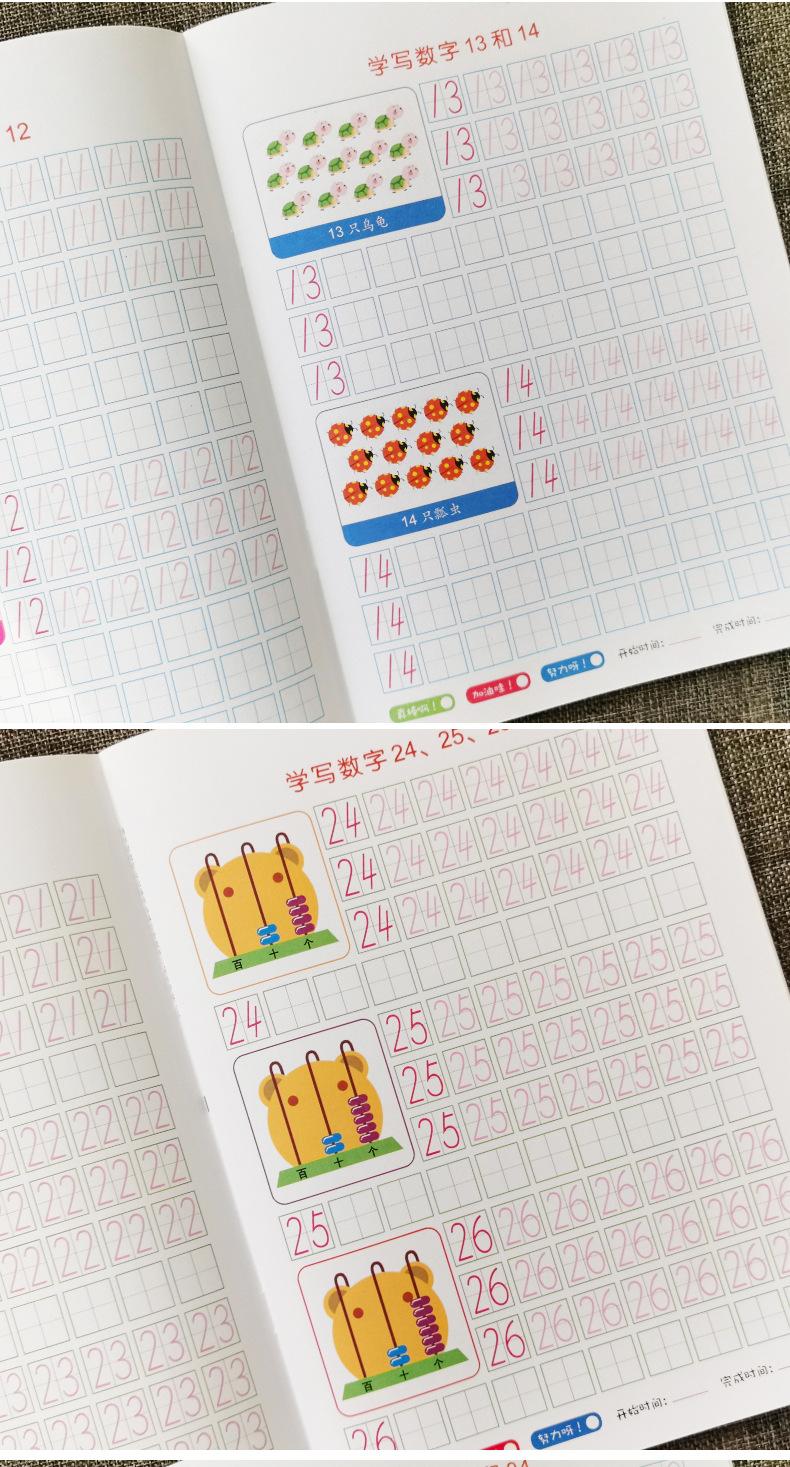 12
学写数字 13 和 14
11 11 11 11
11 11 11 11
11 11 11 11
2 12 12 12 12 12
12 12 12 12 12 12
12 12 12 12 12 12
13 13 13 13 13 13
13 13 13 13 13 13
13 13 13 13 13 13
13 只乌龟
13
13
13
14 14 14 14 14 14
14 14 14 14 14 14
14 14 14 14 14 14
14 只瓢虫
14
14
14
真棒啊！
加油哇！
努力呀！
开始时间：
完成时间：
学写数字 24、25、2
21 21
21 21
21 21
22 22 22 22
22 22 22 22
22 22 22 22
23 23 23 23 23
23 23 23 23
23 23
24 24 24 24 24 24 24
24 24 24 24 24 24 24
24 24 24 24 24 24 24
百 十 个
24
25 25 25 25 25 25 25
25 25 25 25 25 25 25
25 25 25 25 25 25 25
百 十 个
25
26 26 26 26 26 26 26
26 26 26 26 26 26 26
26 26 26 26 26 26 26
百 十 个
26
努力呀！
开始时间：
完成时间：